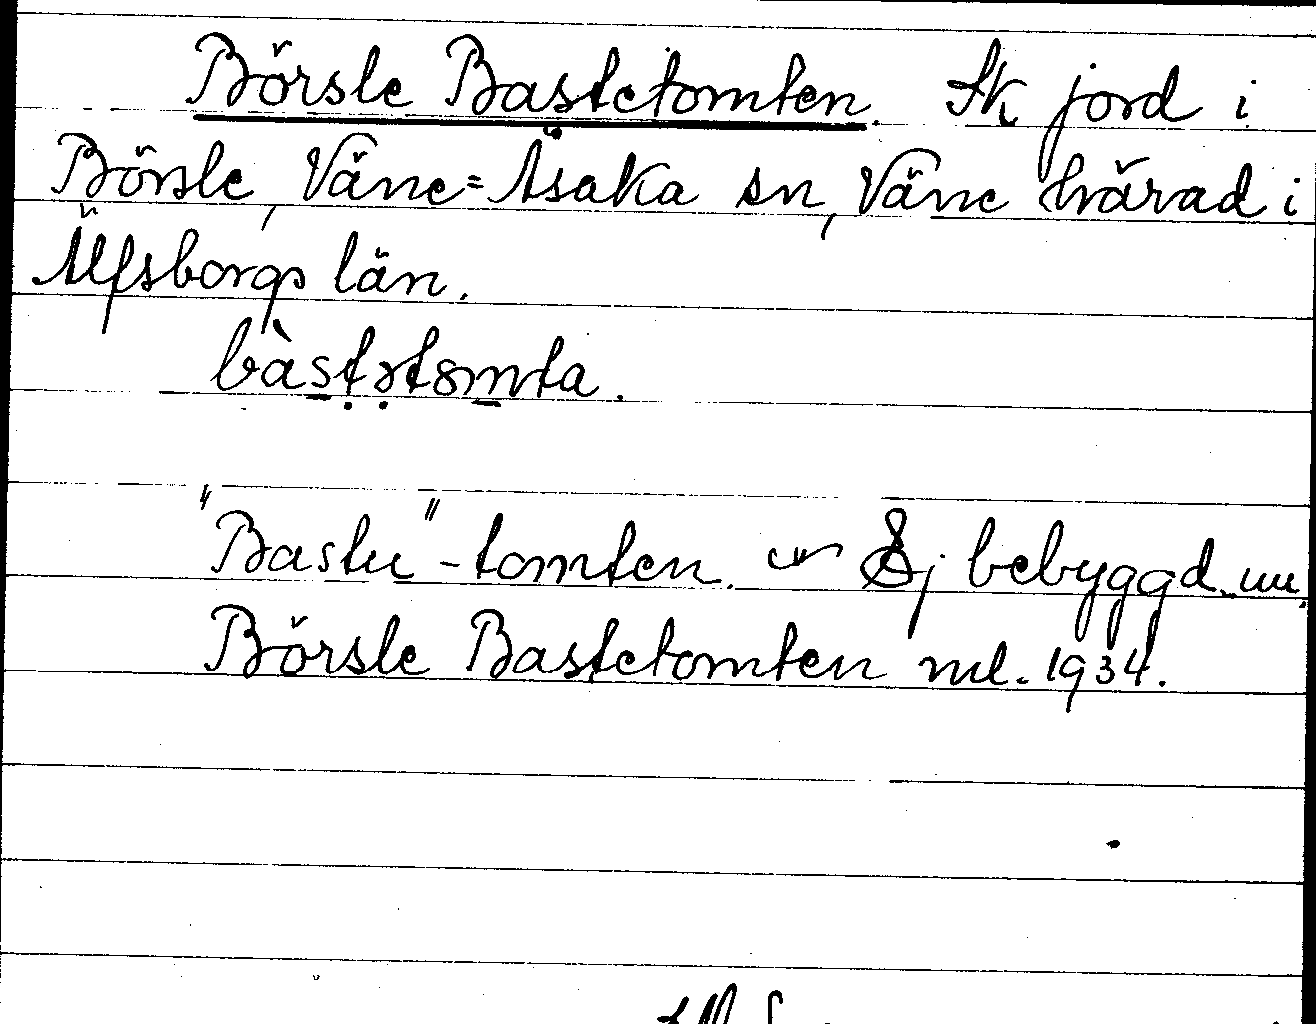 Börsle Bastetomten. Sk jord i
Börsle, Väne=Åsaka sn, Väne härad i
Älfsborgs län.
bàstətomta.
"Bastu"-tomten. Ej bebyggd nu.
Börsle Bastetomten ml. 1934.